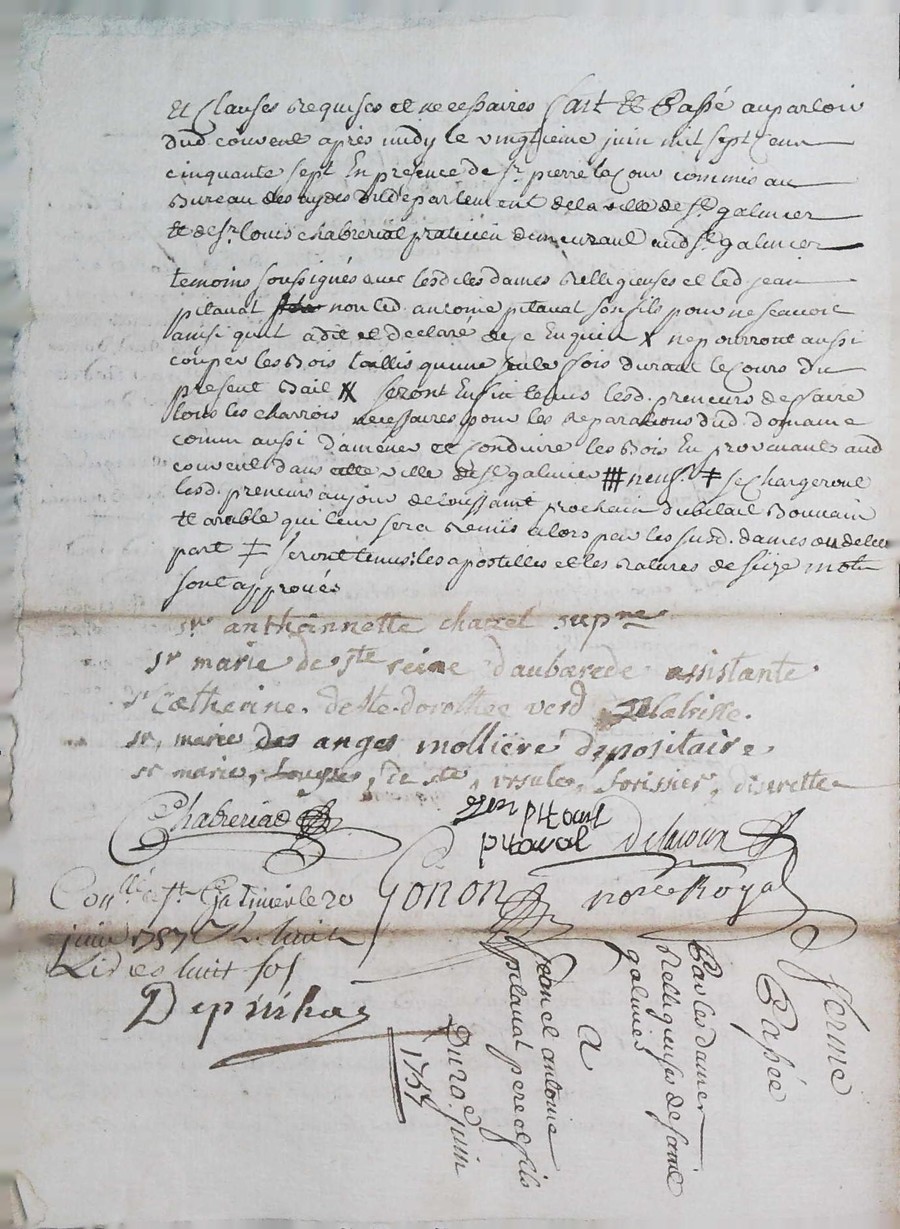 et Clauses requises et necessaires fait et Passé au parloir
dud couvent apres midy le vingtieme juin mil sept Cent
cinquante sept En presence de Sr pierre lacour commis au
Bureau des aydes du departement de la ville de st galmier
et de Sr louis chabreriat praticien demeurant aud st galmier
temoins soussignés avec lesdites dames relligieuses et led jean
pitaval non led antoine pitaval son fils pour ne scavoir
ainsi quil a dit et declaré de ce Enquis x ne pourront aussi
couper les Bois taillis qu'une seule fois durant le Cours du
present Bail x seront Enfin tenus lesd. preneurs de ffaire
tous les charrois necessaires pour les reparations dud. domaine
comm aussi d'amener et conduire les Bois En provenants aud
couvent dans cette ville de st galmier # ‡ se Chargeront
lesd. preneurs au jour de toussaint prochain du betail Bouvain
et arable qui leur sera remis alors par les susd. dames
part ‡ seront tenus: les apostilles et les ratures de seize mots
sont approuvés
sr anthoinnette charret supre
sr marie de ste reine d'auberede assistante
sr Catherine. de ste. dorothée verd
sr, marie des anges molliere depositaire
sr marie, de ste, ursule, forissier, discrette
Chabreriat
pitaval
pitaval delacour
Gonon nore Royal
Conllé a st Galmier le 20
juin 1757 R. huit
Livres huit sols
Depinhac
ferme
Passée
Par les dames
relligieuses de saint
galmier
A
Jean et antoine
pitaval pere et fils
Du 20e. juin
1757